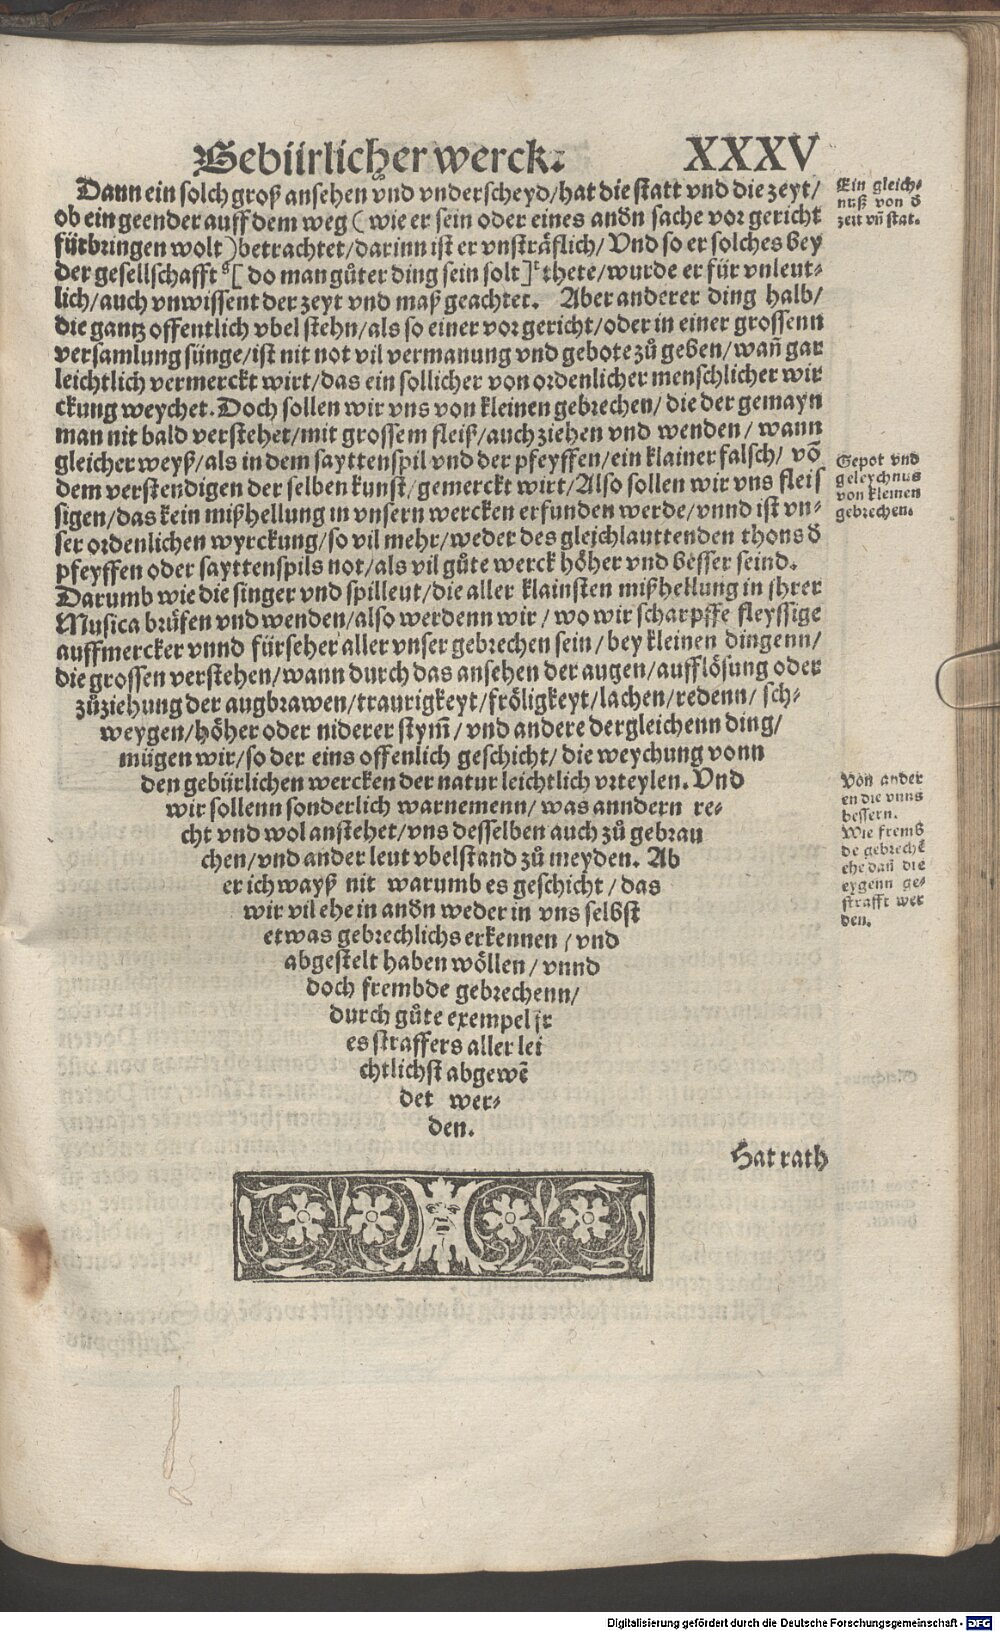 Gebürlicher werck. XXXV
Dann ein solch groß ansehen vnd vnderscheyd/hat die statt vnd die zeyt/
ob ein geender auff dem weg (wie er sein oder eines andn̄ sache vor gericht
fürbringen wolt) betrachtet/darinn ist er vnsträflich/Vnd so er solches bey
der gesellschafft [do man gůter ding sein solt] thete/wurde er für vnleut-
lich/auch vnwissent der zeyt vnd maß geachtet. Aber anderer ding halb/
die gantz offentlich vbel stehn/als so einer vor gericht/oder in einer grossenn
versamlung sünge/ist nit not vil vermanung vnd gebote zů geben/wañ gar
leichtlich vermerckt wirt/das ein sollicher von ordenlicher menschlicher wir
ckung weychet. Doch sollen wir vns von kleinen gebrechen/die der gemayn
man nit bald verstehet/mit grossem fleiß/auch ziehen vnd wenden/wann
gleicher weyß/als in dem sayttenspil vnd der pfeyffen/ein klainer falsch/võ
dem verstendigen der selben kunst/gemerckt wirt/Also sollen wir vns fleis
sigen/das kein mißhellung in vnsern wercken erfunden werde/vnnd ist vn-
ser ordenlichen wyrckung/so vil mehr/weder des gleichlauttenden thons d̄
pfeyffen oder sayttenspils not/als vil gůte werck höher vnd besser seind.
Darumb wie die singer vnd spilleut/die aller klainsten mißhellung in jhrer
Musica brüfen vnd wenden/also werdenn wir/wo wir scharpffe fleyssige
auffmercker vnnd fürseher aller vnser gebrechen sein/bey kleinen dingenn/
die grossen verstehen/wann durch das ansehen der augen/aufflösung oder
zůziehung der augbrawen/traurigkeyt/fröligkeyt/lachen/redenn/sch-
weygen/höher oder niderer stym̄/vnd andere dergleichenn ding/
mügen wir/so der eins offenlich geschicht/die weychung vonn
den gebürlichen wercken der natur leichtlich vrteylen. Vnd
wir sollenn sonderlich warnemenn/was anndern re-
cht vnd wol anstehet/vns desselben auch zů gebrau
chen/vnd ander leut vbelstand zů meyden. Ab
er ich wayß nit warumb es geschicht/das
wir vil ehe in andn̄ weder in vns selbst
etwas gebrechlichs erkennen/vnd
abgestelt haben wöllen/vnnd
doch frembde gebrechenn/
durch gůte exempel jr
es straffers aller lei
chtlichst abgewẽ
det wer-
den.
Hat rath
Ein gleich-
nuß von d̄
zeit vñ stat.
Gepot vnd
geleychnus
von kleinen
gebrechen.
Von ander
en die vnns
bessern.
Wie fremb
de gebrechẽ
ehe dañ die
eygenn ge-
strafft wer
den.
Digitalisierung gefördert durch die Deutsche Forschungsgemeinschaft - DFG